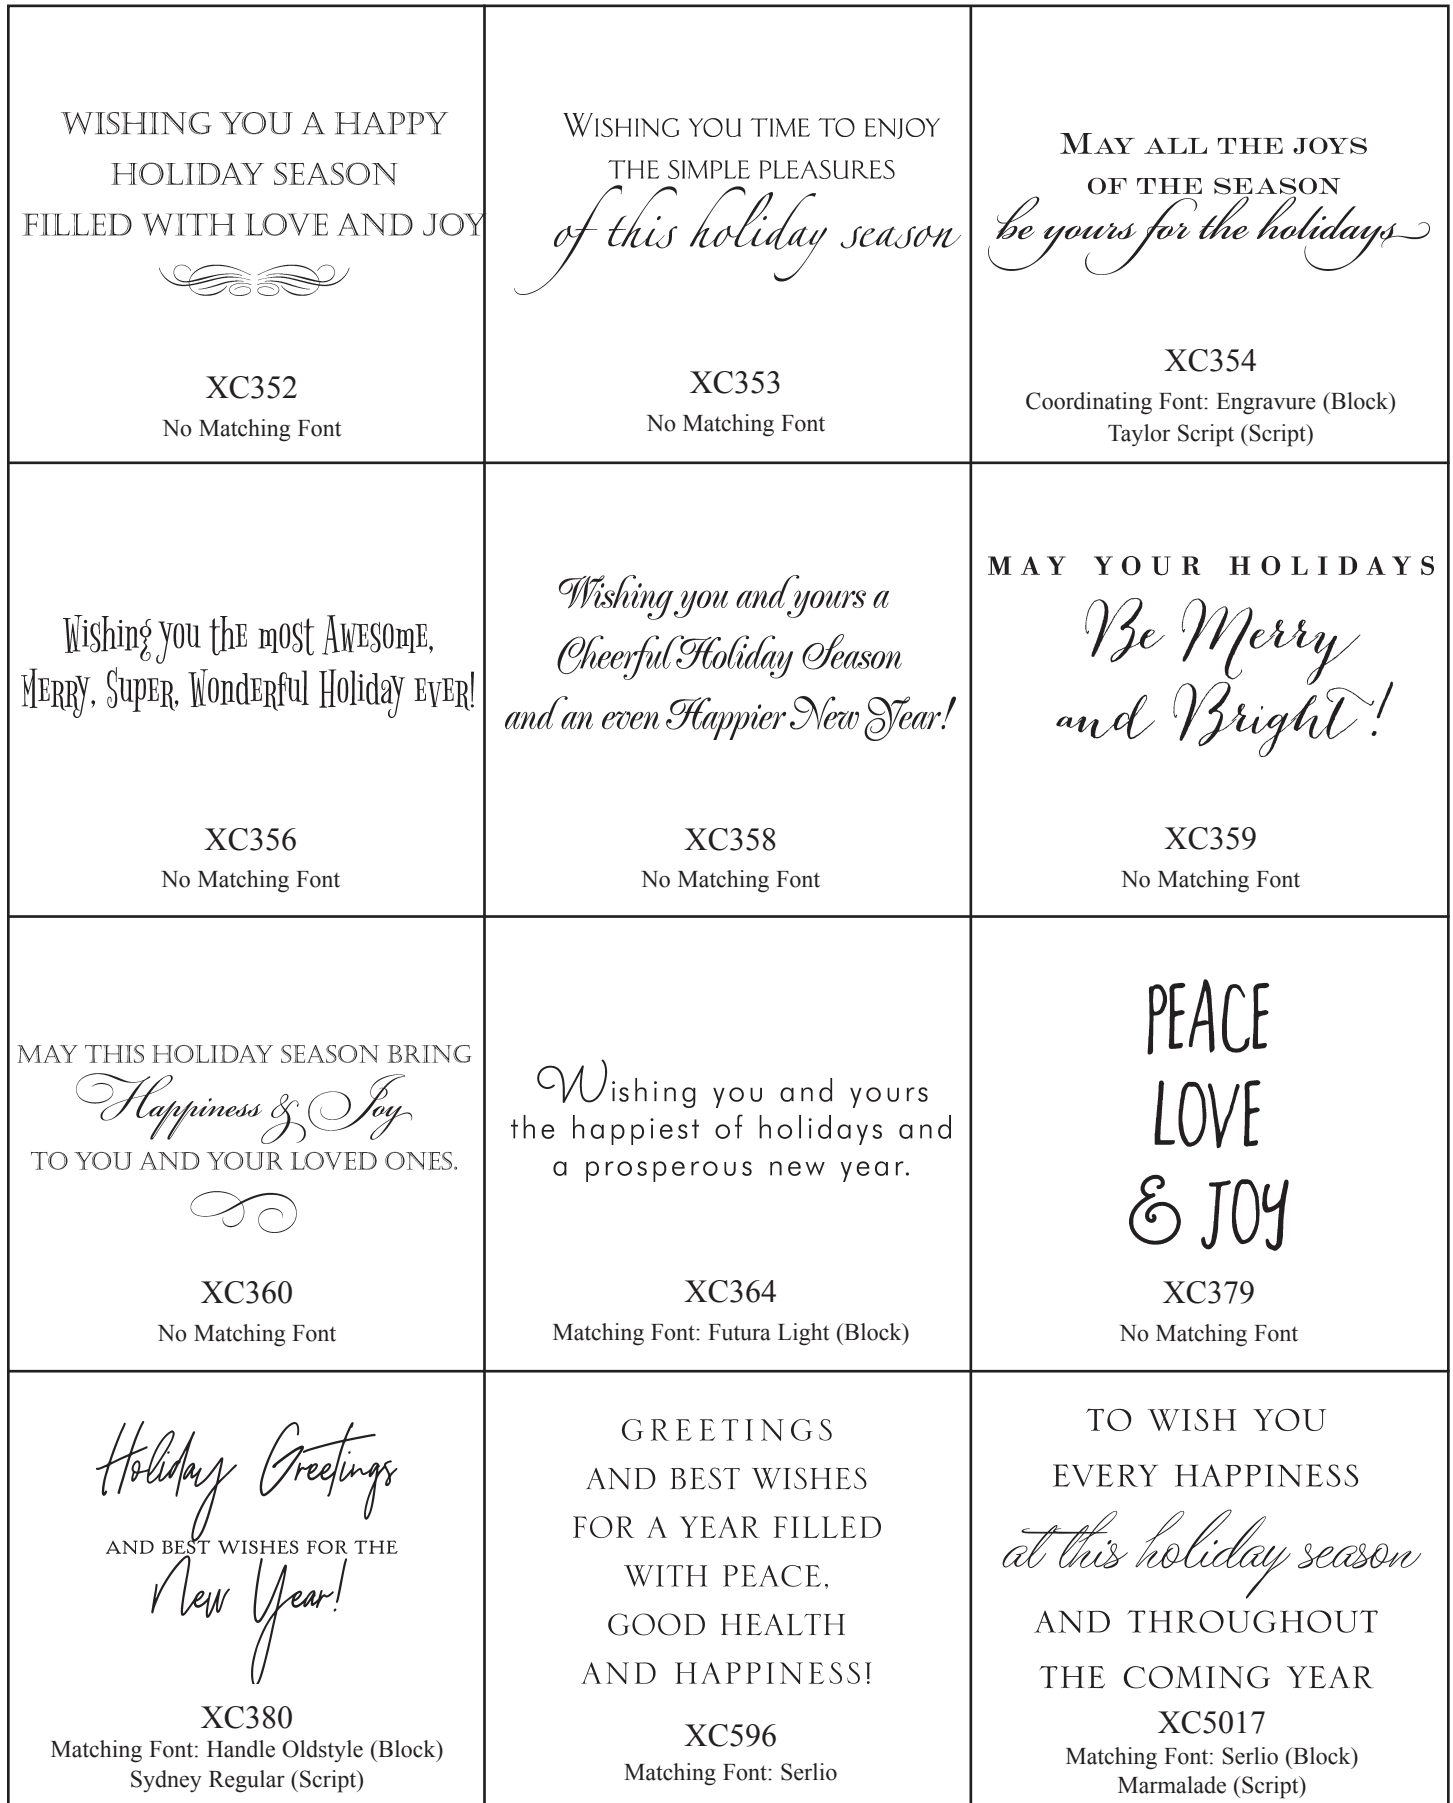 WISHING YOU A HAPPY
HOLIDAY SEASON
FILLED WITH LOVE AND JOY
XC352
No Matching Font
WISHING YOU TIME TO ENJOY
THE SIMPLE PLEASURES
of this holiday season
XC353
No Matching Font
MAY ALL THE JOYS
OF THE SEASON
be yours for the holidays
XC354
Coordinating Font: Engravure (Block)
Taylor Script (Script)
Wishing you the most Awesome,
Merry, Super, Wonderful Holiday ever!
XC356
No Matching Font
Wishing you and yours a
Cheerful Holiday Season
and an even Happier New Year!
XC358
No Matching Font
MAY YOUR HOLIDAYS
Be Merry
and Bright!
XC359
No Matching Font
MAY THIS HOLIDAY SEASON BRING
Happiness & Joy
TO YOU AND YOUR LOVED ONES.
XC360
No Matching Font
Wishing you and yours
the happiest of holidays and
a prosperous new year.
XC364
Matching Font: Futura Light (Block)
PEACE
LOVE
& JOY
XC379
No Matching Font
Holiday Greetings
AND BEST WISHES FOR THE
New Year!
XC380
Matching Font: Handle Oldstyle (Block)
Sydney Regular (Script)
GREETINGS
AND BEST WISHES
FOR A YEAR FILLED
WITH PEACE,
GOOD HEALTH
AND HAPPINESS!
XC596
Matching Font: Serlio
TO WISH YOU
EVERY HAPPINESS
at this holiday season
AND THROUGHOUT
THE COMING YEAR
XC5017
Matching Font: Serlio (Block)
Marmalade (Script)